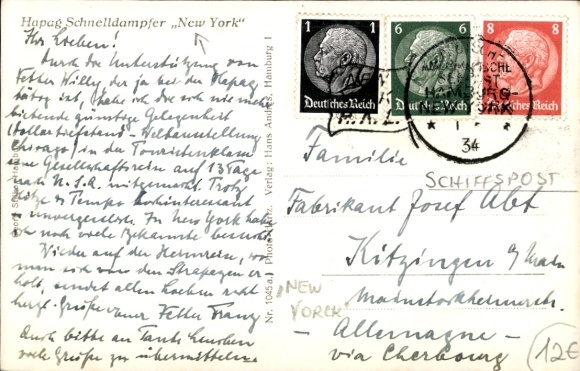 Hapag Schnelldampfer „New York"
Ihr Lieben!
Durch die Unterstützung von
Vetter Willy der ja bei der Hapag
tätig ist, habe ich die sich nie mehr
bietende günstige Gelegenheit
(Dollartiefstand - Weltausstellung
Chicago) in der Touristenklasse
eine Gesellschaftsreise auf 13 Tage
nach U.S.A. mitgemacht. Trotz
Hitze u. Tempo hochinteressant
u. unvergesslich. In New York habe
ich noch viele Bekannte besucht.
Wieder auf der Heimreise, wo
man sich von den Strapazen er-
holt, sendet allen Lieben recht
herzl. Grüße euer Vetter Franz
Auch bitte an Tante
viele Grüße zu übermitteln
Nr. 1045a.) Verlag: Hans Andres, Hamburg 1
1 1
Deutsches Reich
6 6
Deutsches Reich
8 8
Deutsches Reich
HAMBURG
34
Familie
SCHIFFSPOST
Fabrikant Josef Abt
Kitzingen a/Main
"NEW
YORCK"
Mainstockheimerstr.
- Allemagne -
via Cherbourg
12€